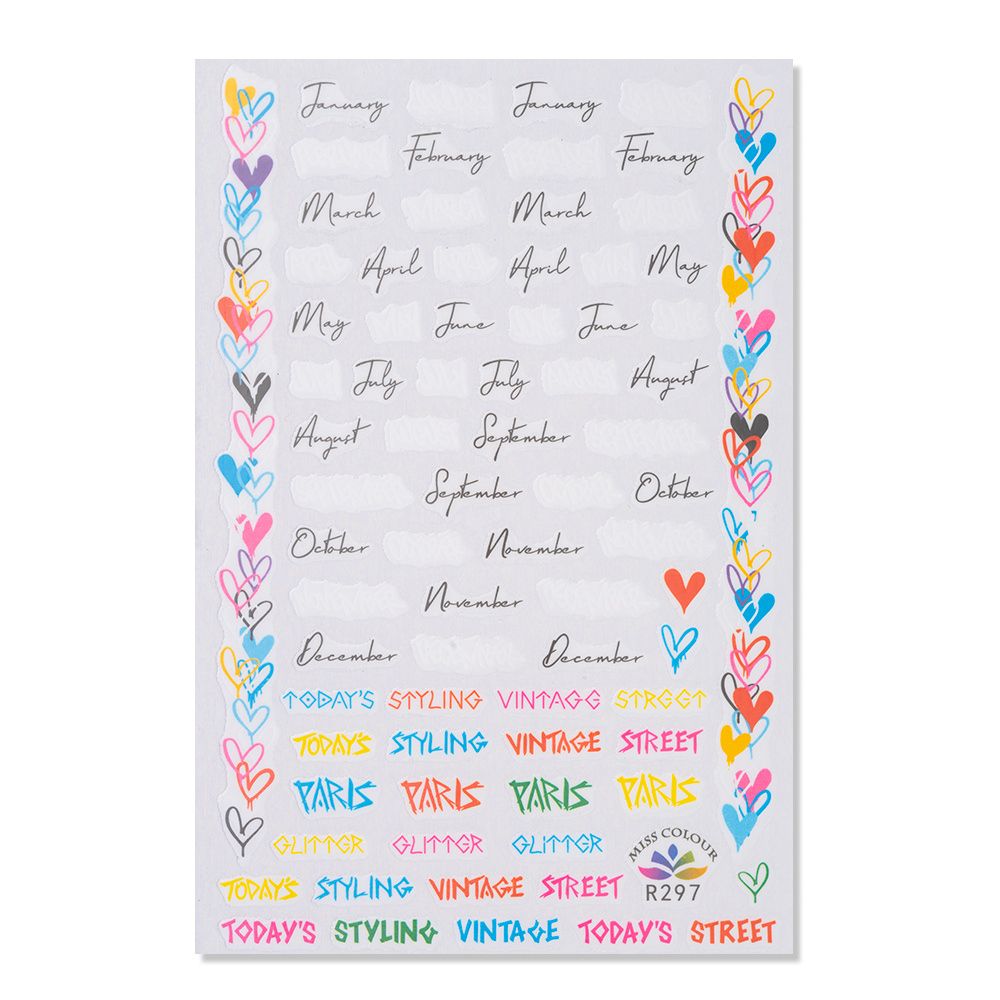 January January
February February
March March
April April May
May June June
July July August
August September
September October
October November
November
December December
TODAY'S STYLING VINTAGE STREET
TODAY'S STYLING VINTAGE STREET
PARIS PARIS PARIS PARIS
GLITTER GLITTER GLITTER
MISS COLOUR
R297
TODAY'S STYLING VINTAGE STREET
TODAY'S STYLING VINTAGE TODAY'S STREET